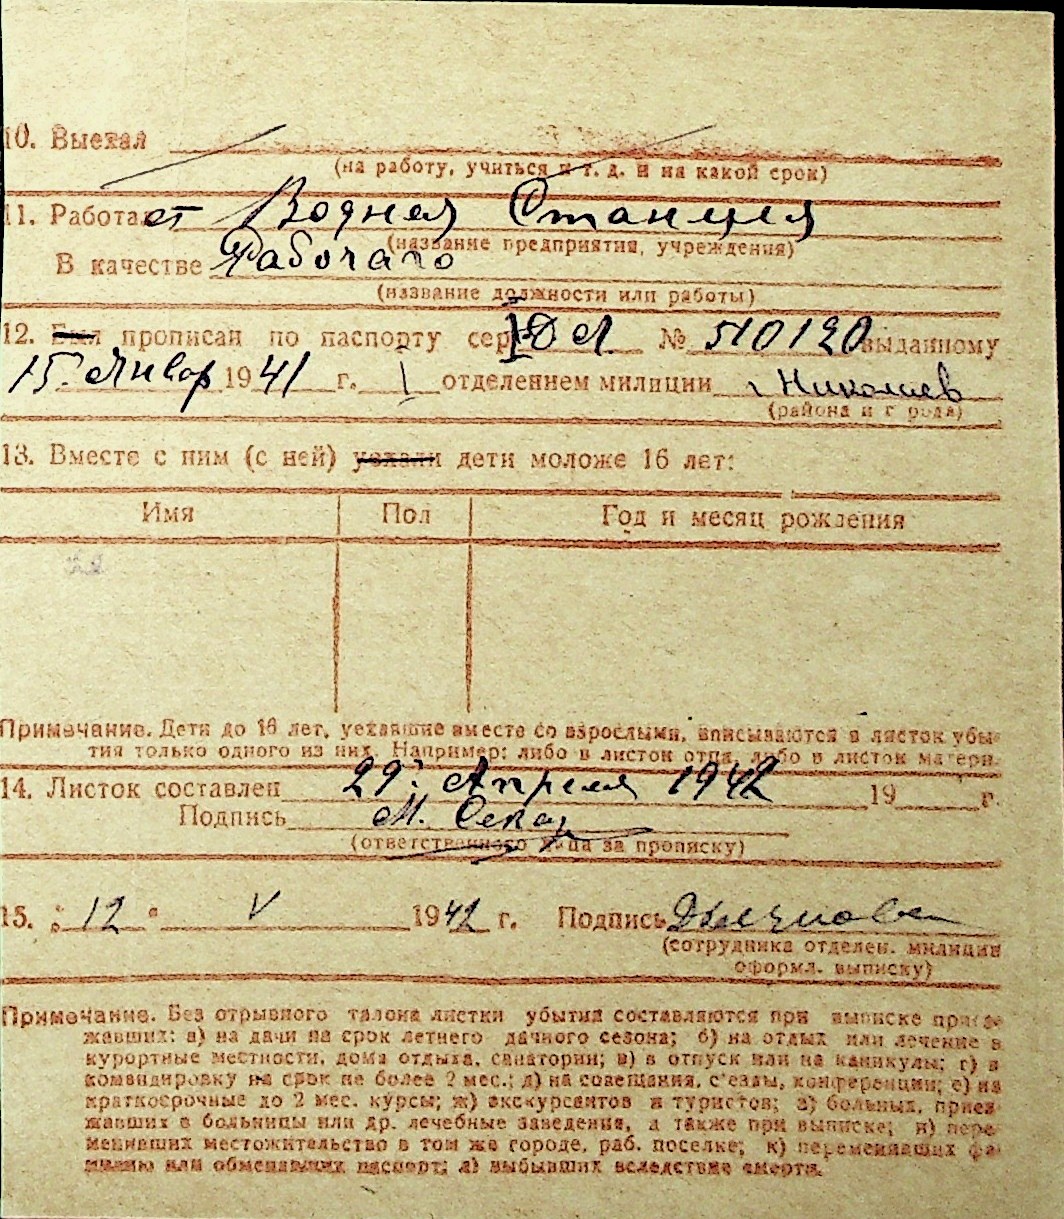 10. Выехал
(на работу, учиться и т. д. и на какой срок)
11. Работает Водная Станция
(название предприятия, учреждения)
В качестве Рабочаго
(название должности или работы)
12. Был прописан по паспорту сер № 510120 выданному
15 Январ 1941 г. I отделением милиции г Николаев
(района и города)
13. Вместе с ним (с ней) уехали дети моложе 16 лет:
Имя Пол Год и месяц рождения
Примечание. Дети до 16 лет, уехавшие вместе со взрослыми, вписываются в листок убы-
тия только одного из них. Например: либо в листок отца, либо в листок матери.
14. Листок составлен 29 Апреля 1942 19 г.
Подпись М.
(ответственного лица за прописку)
15. " 12 " V 1942 г. Подпись
(сотрудника отделен. милиции
оформл. выписку)
Примечание. Без отрывного талона листки убытия составляются при выписке приез-
жавших: а) на дачи на срок летнего дачного сезона; б) на отдых или лечение в
курортные местности, дома отдыха, санатории; в) в отпуск или на каникулы; г) в
командировку на срок не более 2 мес.; д) на совещания, с'езды, конференции; е) на
краткосрочные до 2 мес. курсы; ж) экскурсантов и туристов; з) больных, приез-
жавших в больницы или др. лечебные заведения, а также при выписке; и) пере-
менивших местожительство в том же городе, раб. поселке; к) переменивших фа-
милию или обменявших паспорт; л) выбывших вследствие смерти.